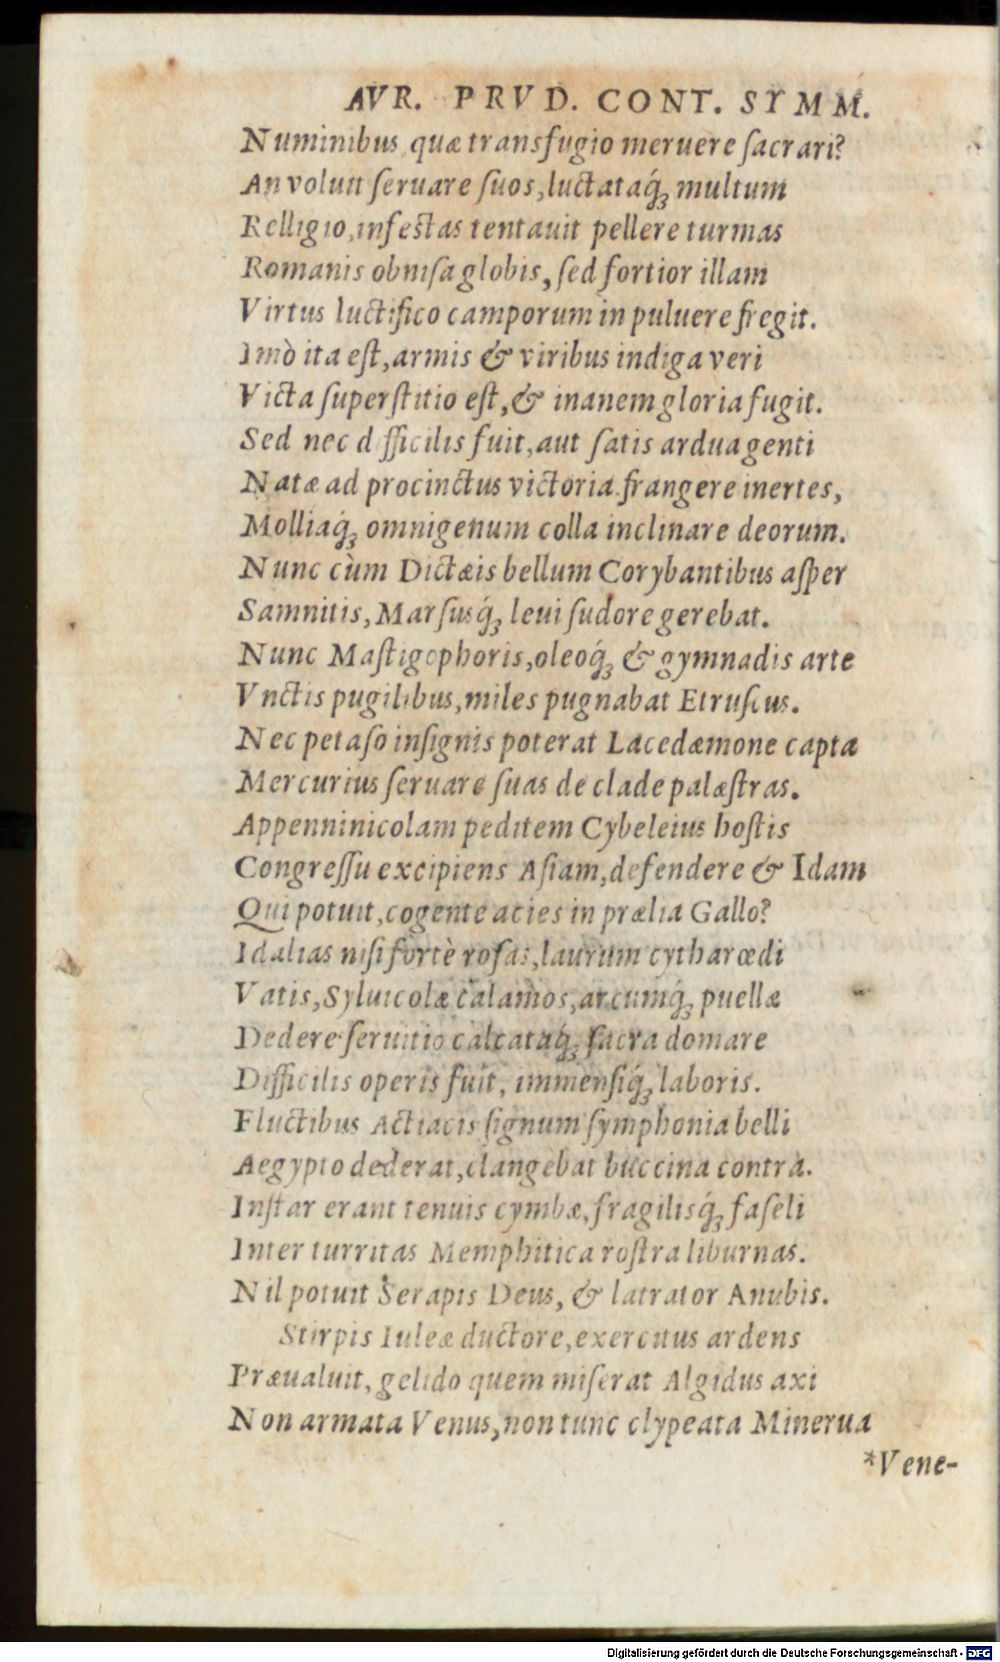 AVR. PRVD. CONT. SYMM.
Numinibus quæ transfugio meruere sacrari?
An voluit seruare suos, luctataq́ꝫ multum
Relligio, infestas tentauit pellere turmas
Romanis obnisa globis, sed fortior illam
Virtus luctifico camporum in puluere fregit.
Imò ita est, armis & viribus indiga veri
Victa superstitio est, & inanem gloria fugit.
Sed nec difficilis fuit, aut satis ardua genti
Natæ ad procinctus victoria frangere inertes,
Molliaq́ꝫ omnigenum colla inclinare deorum.
Nunc cùm Dictæis bellum Corybantibus asper
Samnitis, Marsusq́ꝫ leui sudore gerebat.
Nunc Mastigophoris, oleoq́ꝫ & gymnadis arte
Vnctis pugilibus, miles pugnabat Etruscus.
Nec petaso insignis poterat Lacedæmone capta
Mercurius seruare suas de clade palæstras.
Appenninicolam peditem Cybeleius hostis
Congressu excipiens Asiam, defendere & Idam
Qui potuit, cogente acies in prælia Gallo?
Idalias nisi fortè rosas, laurum cytharœdi
Vatis, Syluicolæ calamos, arcumq́ꝫ puellæ
Dedere seruitio calcataq́ꝫ sacra domare
Difficilis operis fuit, immensiq́ꝫ laboris.
Fluctibus Actiacis signum symphonia belli
Aegypto dederat, clangebat buccina contrà.
Instar erant tenuis cymbæ, fragilisq́ꝫ faseli
Inter turritas Memphitica rostra liburnas.
Nil potuit Serapis Deus, & latrator Anubis.
Stirpis Iuleæ ductore, exercitus ardens
Præualuit, gelido quem miserat Algidus axi
Non armata Venus, non tunc clypeata Minerua
*Vene-
Digitalisierung gefördert durch die Deutsche Forschungsgemeinschaft - DFG